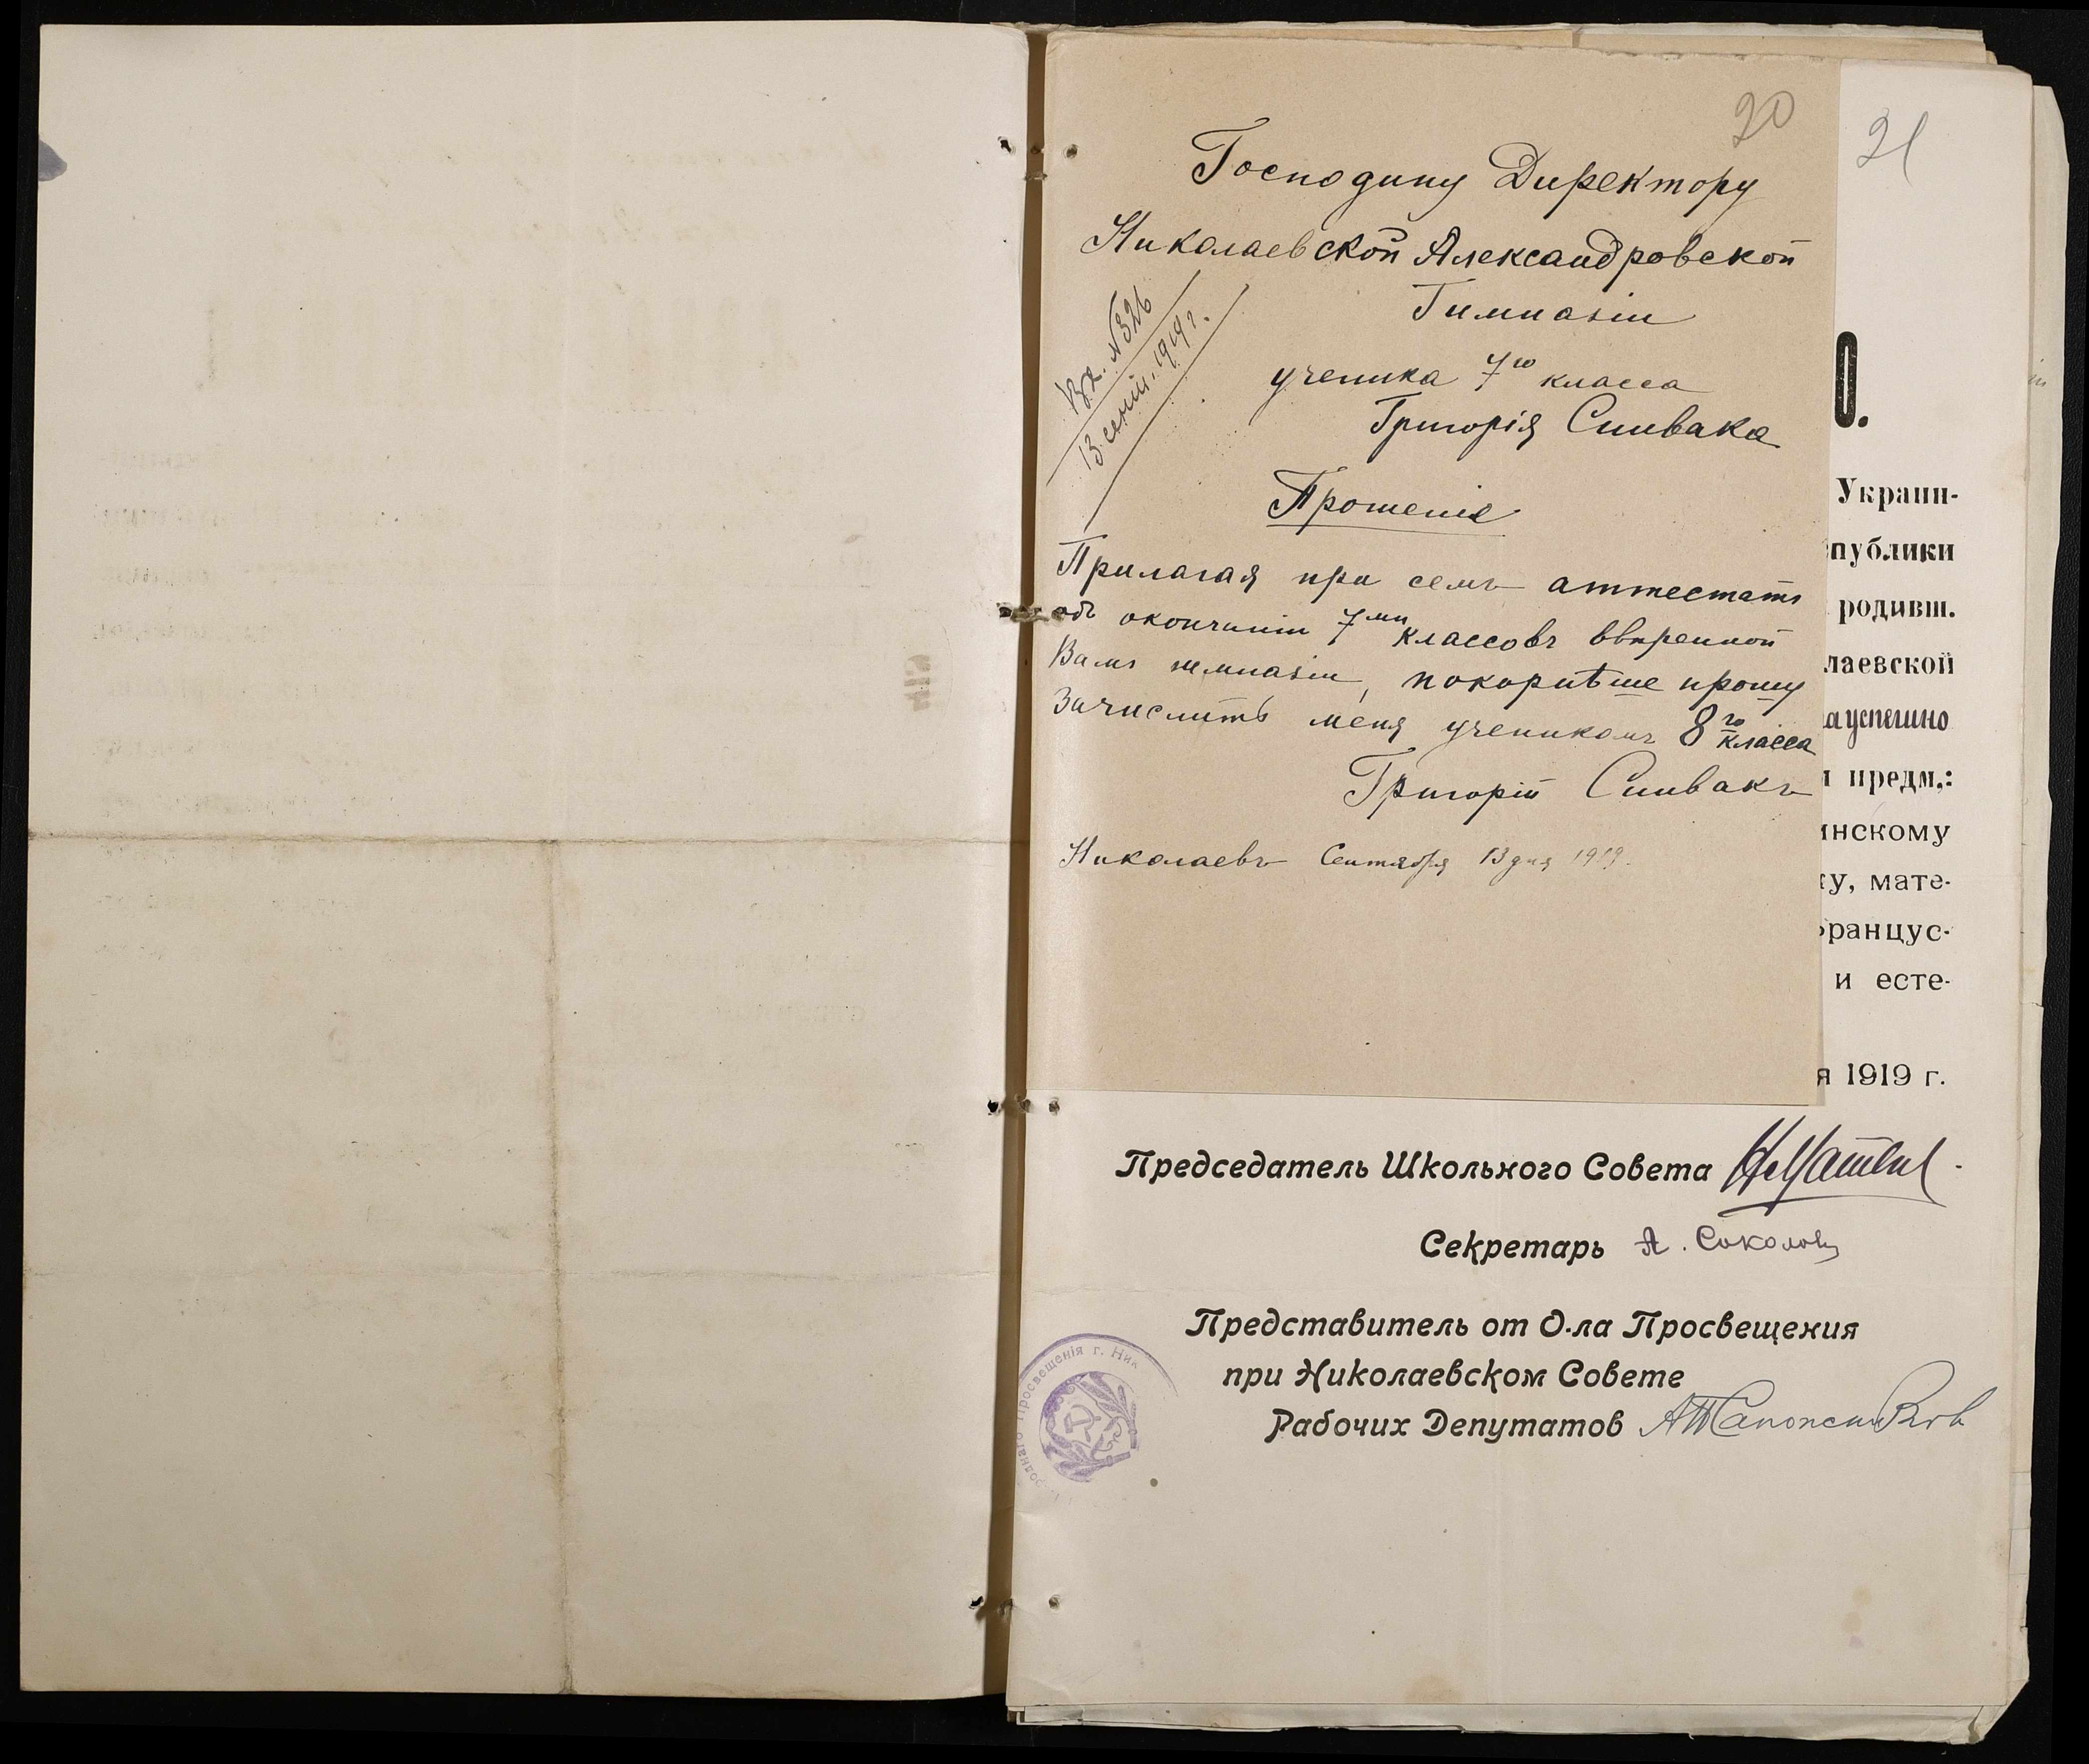 20
21
Господину Директору
Николаевской Александровской
Гимназіи
Вх. №326
13 сент. 1919 г.
ученика 7го класса
Григорія Спивака
Прошеніе
Прилагая при семъ аттестатъ
объ окончаніи 7ми классовъ ввѣренной
Вамъ гимназіи, покорнѣше прошу
зачислить меня ученикомъ 8го класса
Григорій Спивакъ
Николаевъ Сентября 13 дня 1919.
О.
Украин-
публики
родивш.
лаевской
а успешно
и предм.:
инскому
ку, мате-
Францус-
и есте-
я 1919 г.
Председатель Школьного Совета
Секретарь А. Соколовъ
Представитель от О-ла Просвещения
при Николаевском Совете
Рабочих Депутатов
роднаго Просвещенія г. Ник